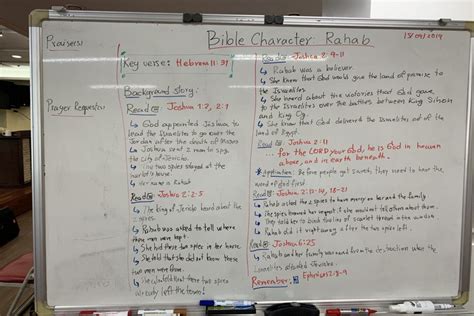 Praises:
Prayer Requests:
Bible Character: Rahab
15/09/2019
Key verse: Hebrew 11:31
Background story:
Read @: Joshua 1:2, 2:1
God appointed Joshua to
lead the Israelites to go over the
Jordan after the death of Moses
Joshua sent 2 men to spy
the city of Jericho.
The two spies stayed at the
harlot's house
Her name is Rahab
Read @: Joshua 2:2-5
The king of Jericho heard about the
spies.
Rahab was asked to tell where
those men were kept.
She hid those two spies in her house.
She told that she did not know these
two men were from.
She said that these two spies
already left the town!
Joshua 2: 9-11
Rahab was a believer
She knew that God would give the land of promise to
the Israelites
She heard about the victories that God gave
to the Israelites over the battles between King Sihon
and King Og.
She knew that God delivered the Israelites out of the
land of Egypt.
Read @: Joshua 2:11
... for the LORD your God, he is God in heaven
above, and in earth beneath.
Application: Before people get saved, they need to hear the
word of God first
Read @: Joshua 2:12-14, 18-21
Rahab asked the 2 spies to have mercy on her and the family
The spies honored her request if she would not tell others about them
They told her to bind the line of scarlet thread in the window
Rahab did it right away after the two spies left.
Read @: Joshua 6:25
Rahab and her family was saved from the destruction when the
Israelites attacked Jericho.
Remember: Ephesians 2:8-9